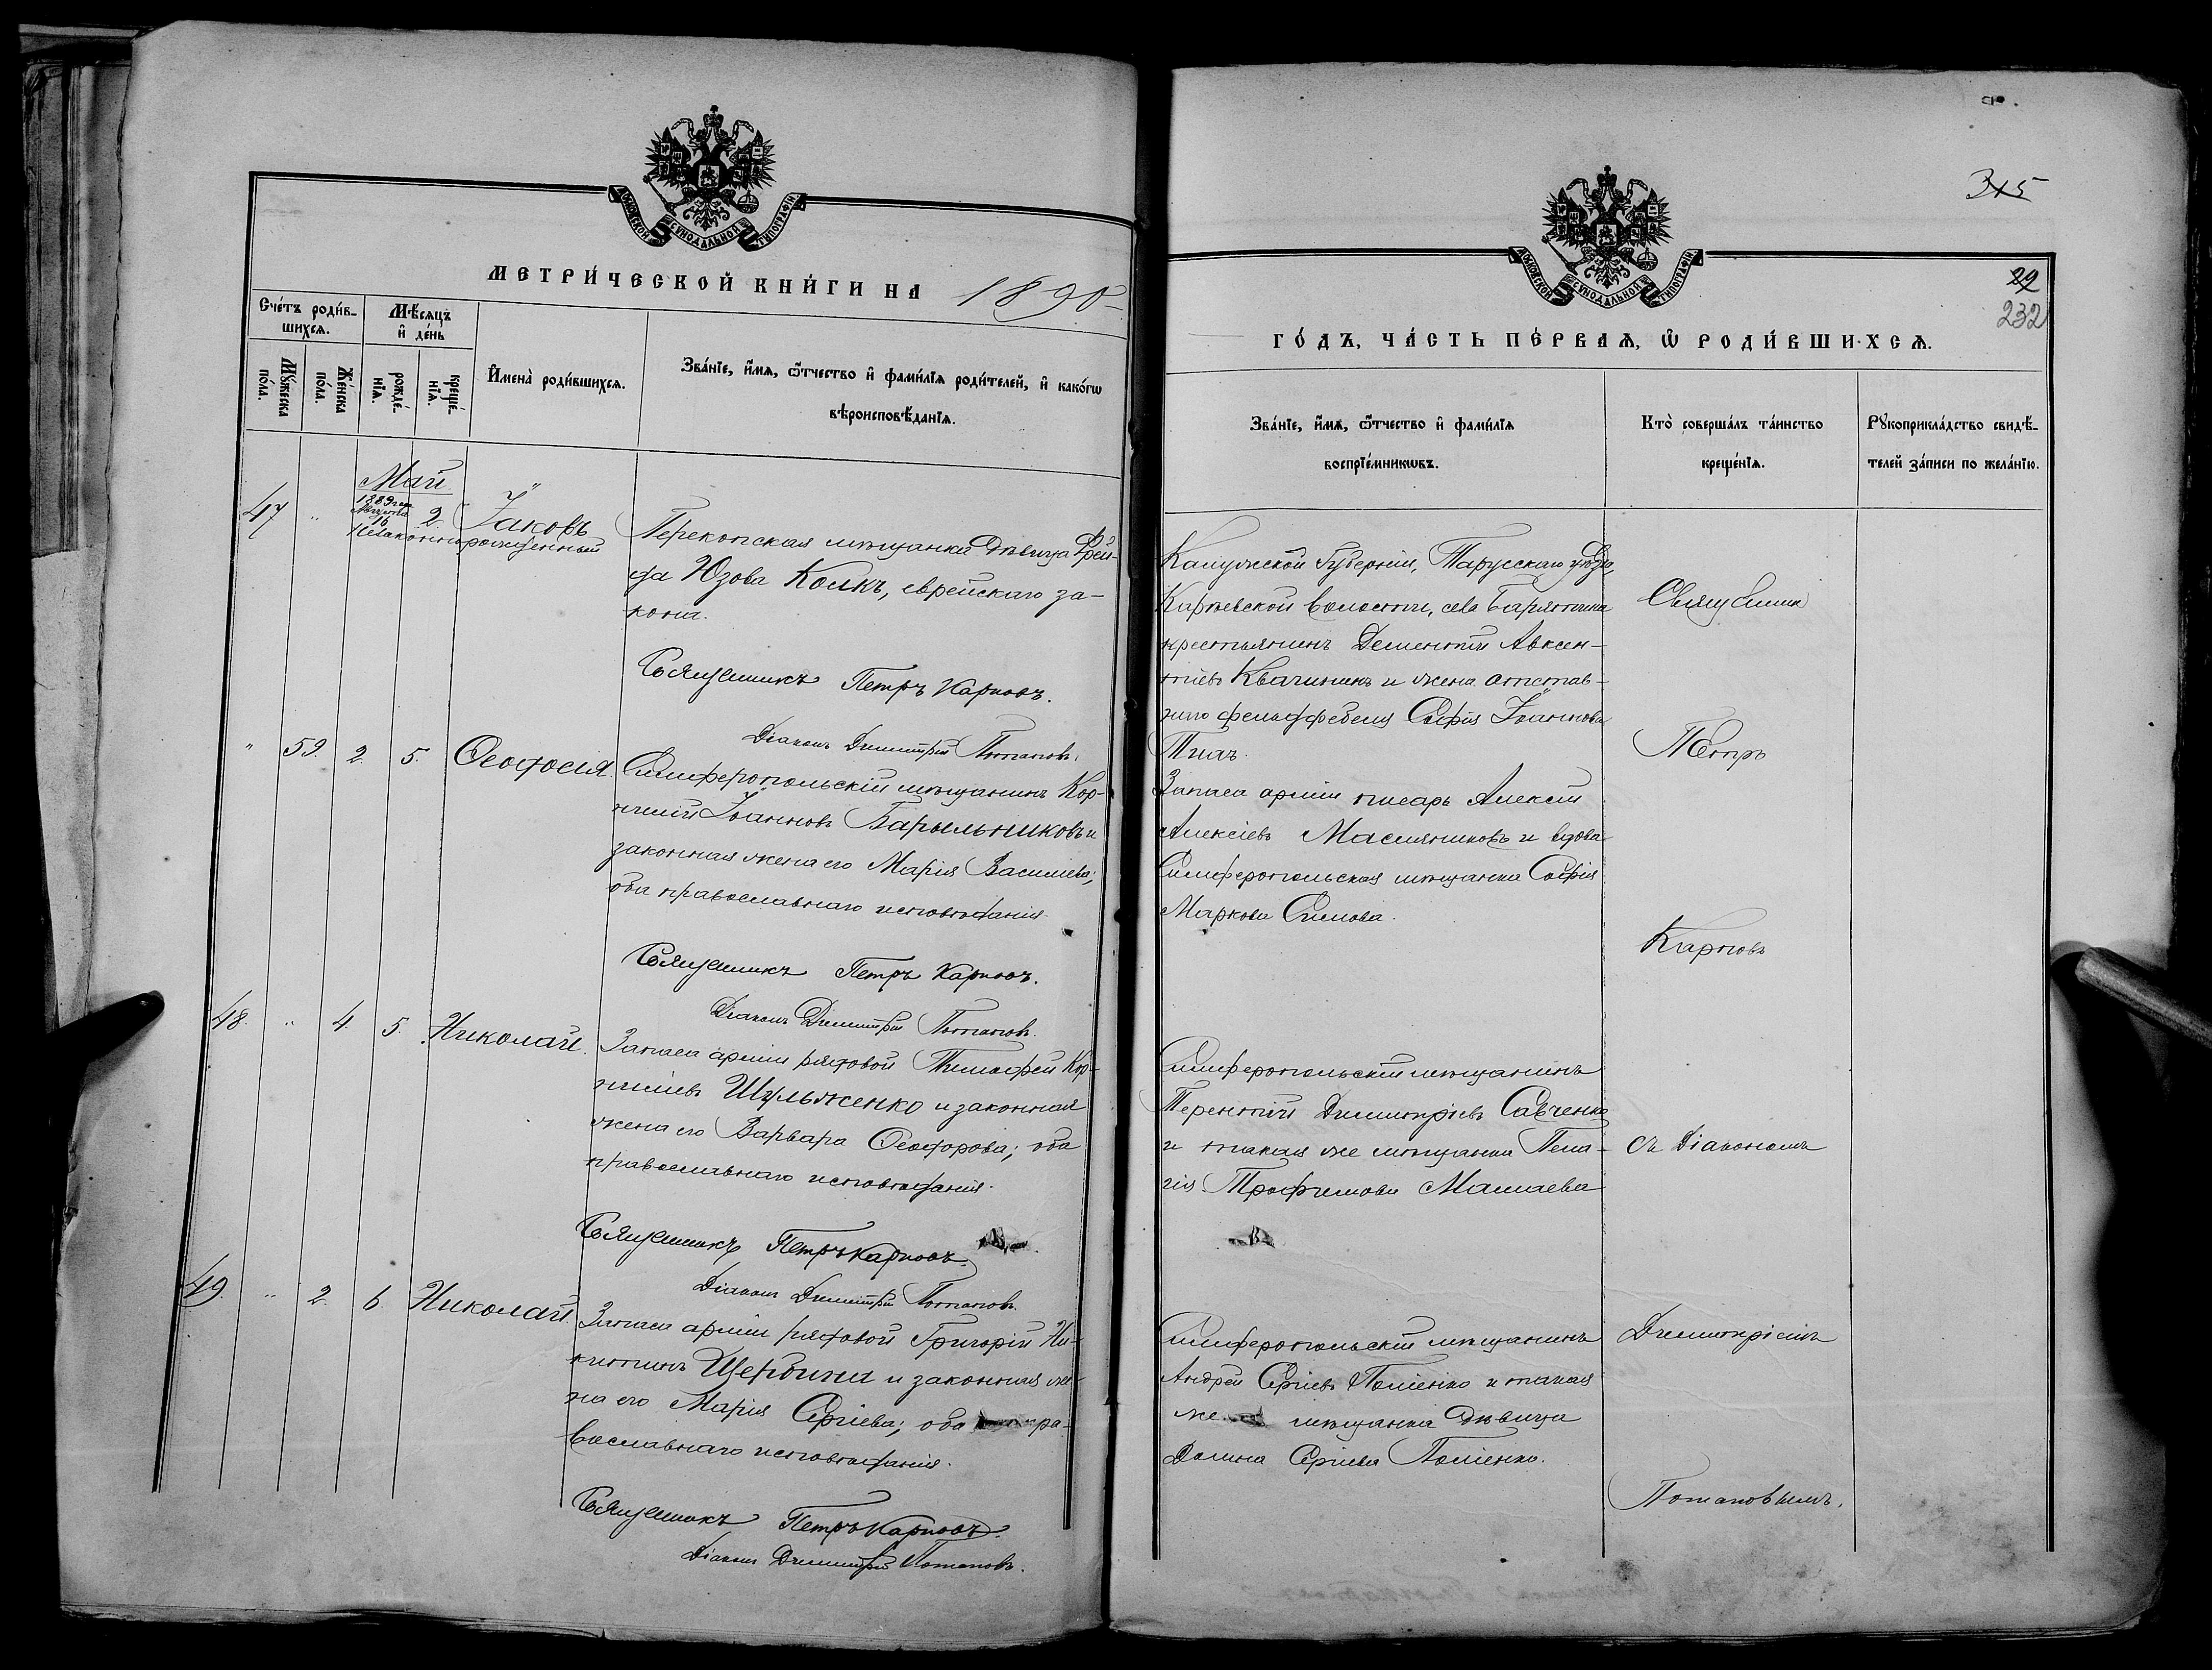 МОСКОВСКОЙ СѴНОДАЛЬНОЙ ТИПОГРАФІИ
МЕТРИ́ЧЕСКОЙ КНИ́ГИ НА 1890
Сче́тъ роди́в-
шихсѧ.
Мꙋ́жеска
по́ла.
Же́нска
по́ла.
Мѣ́сѧцъ
и҆ де́нь
рожде́-
нїѧ.
креще́-
нїѧ.
И҆мена̀ роди́вшихсѧ.
Зва́нїе, и҆́мѧ, ѻ҆́тчество и҆ фами́лїѧ роди́телей, и҆ како́гѡ
вѣроисповѣ́данїѧ.
Май
47 " 1889 года
Августа
16 2. Іаковъ
Незаконнорожденный
Перекопская мѣщанка дѣвица Фрей-
да Юзова Колкъ, еврейскаго за-
кона.
Священникъ Петръ Карповъ.
Діаконъ Димитрій Потаповъ.
" 59. 2. 5. Ѳеодосія.
Симферопольскій мѣщанинъ Кор-
нилій Іоанновъ Барыльниковъ и
законная жена его Марія Василіева;
оба православнаго исповѣданія.
Священникъ Петръ Карповъ.
Діаконъ Димитрій Потаповъ.
48. " 4. 5. Николай.
Запаса арміи рядовой Тимофей Кор-
ниліевъ Шульженко и законная
жена его Варвара Ѳеодорова; оба
православнаго исповѣданія.
Священникъ Петръ Карповъ.
Діаконъ Димитрій Потаповъ.
49. " 2. 6. Николай
Запаса арміи рядовой Григорій Ни-
китинъ Щербина и законная же-
на его Марія Сергіева; оба пра-
вославнаго исповѣданія.
Священникъ Петръ Карповъ.
Діаконъ Димитрій Потаповъ.
315
29
232
МОСКОВСКОЙ СѴНОДАЛЬНОЙ ТИПОГРАФІИ
ГО́ДЪ, ЧА́СТЬ ПЕ́РВАѦ, Ѡ҆ РОДИ́ВШИХСѦ.
Зва́нїе, и҆́мѧ, ѻ҆́тчество и҆ фами́лїѧ
воспрїе́мникѡвъ.
Кто̀ соверша́лъ та́инство
креще́нїѧ.
Рꙋкоприкла́дство свидѣ́-
телей за́писи по жела́нїю.
Калужской Губерніи, Тарусскаго уѣзда,
волости, села Барятина
крестьянинъ Дементій Авксен-
тіевъ Квачинъ и жена отстав-
ного фельдфебеля Софія Іоаннова
Запаса арміи писарь Алексій
Алексіевъ Масляниковъ и вдова
Симферопольская мѣщанка Софія
Маркова Симова.
Симферопольскій мѣщанинъ
Терентій Димитріевъ Савченко
и такая же мѣщанка Пела-
гія Трофимова Малаева
Симферопольскій мѣщанинъ
Андрей Сергіевъ Поліенко и такая
же мѣщанка дѣвица
Домна Сергіева Поліенко.
Священник
Петръ
Карповъ
съ Діакономъ
Димитріемъ
Потаповымъ.